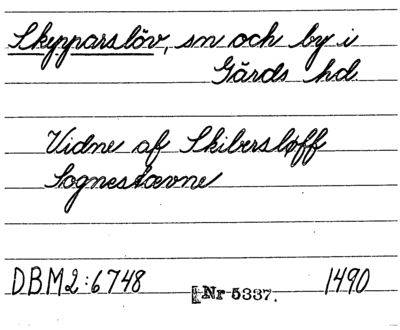 Skypparslöv, sn och by i
Gärds hd.
Vidne af Skibersløff
Sognestævne
DBM2:6748 Nr 5337. 1490